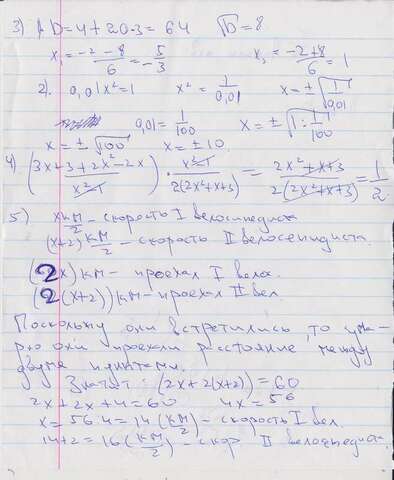 3) D=4+20·3=64 √D=8
x₁=(-2-8)/6=-5/3 x₁=(-2+8)/6=1
2). 0,01x²=1 x²=1/0,01 x=±√(1/0,01)
0,01=1/100 x=±√(1:1/100)
x=±√100 x=±10.
4) ((3x+3+2x²-2x)/(x²-1))·(x²-1)/(2(2x²+x+3))=(2x²+x+3)/(2(2x²+x+3))=1/2.
5) x км/г - скорость I велосипедиста
(x+2) км/г - скорость II велосепидиста.
(2x) км - проехал I вело.
(2(x+2)) км - проехал II вел.
Поскольку они встретились, то
они проехали расстояние между
двумя пунктами.
Значит: (2x+2(x+2))=60
2x+2x+4=60 4x=56
x=56:4=14 (км/г) - скорость I вел.
14+2=16 (км/г) - скор II велосипедиста.